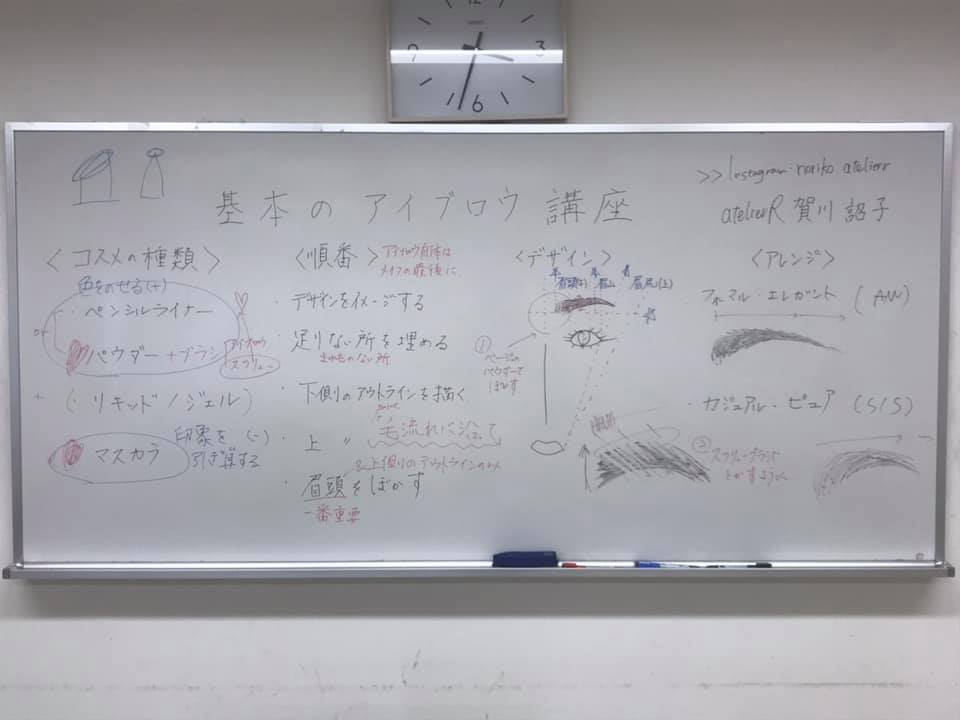 12
9
3
6
>> Instagram: noriko atelierr
基本の アイブロウ 講座
atelierR 賀川 認子
〈コスメの種類〉
色をのせる(+)
・ペンシルライナー
or
パウダー + ブラシ
アイブロウ
スクリュー
+ (・リキッド / ジェル)
マスカラ
印象を (-)
引き算する
〈順番〉
アイブロウ自体は
メイクの最後に
・デザインをイメージする
・足りない所を埋める
まわりのない所
・下側のアウトラインを描く
・上 〃 毛流れに沿って
&上側りのアウトラインのみ
・眉頭をぼかす
一番重要
〈デザイン〉
眉頭(下)
眉山
眉尻(上)
①
ベージュの
パウダーで
ぼかす
②
スクリューブラシで
とかすように
〈アレンジ〉
フォーマル・エレガント (AW)
・カジュアル・ピュア (S/S)